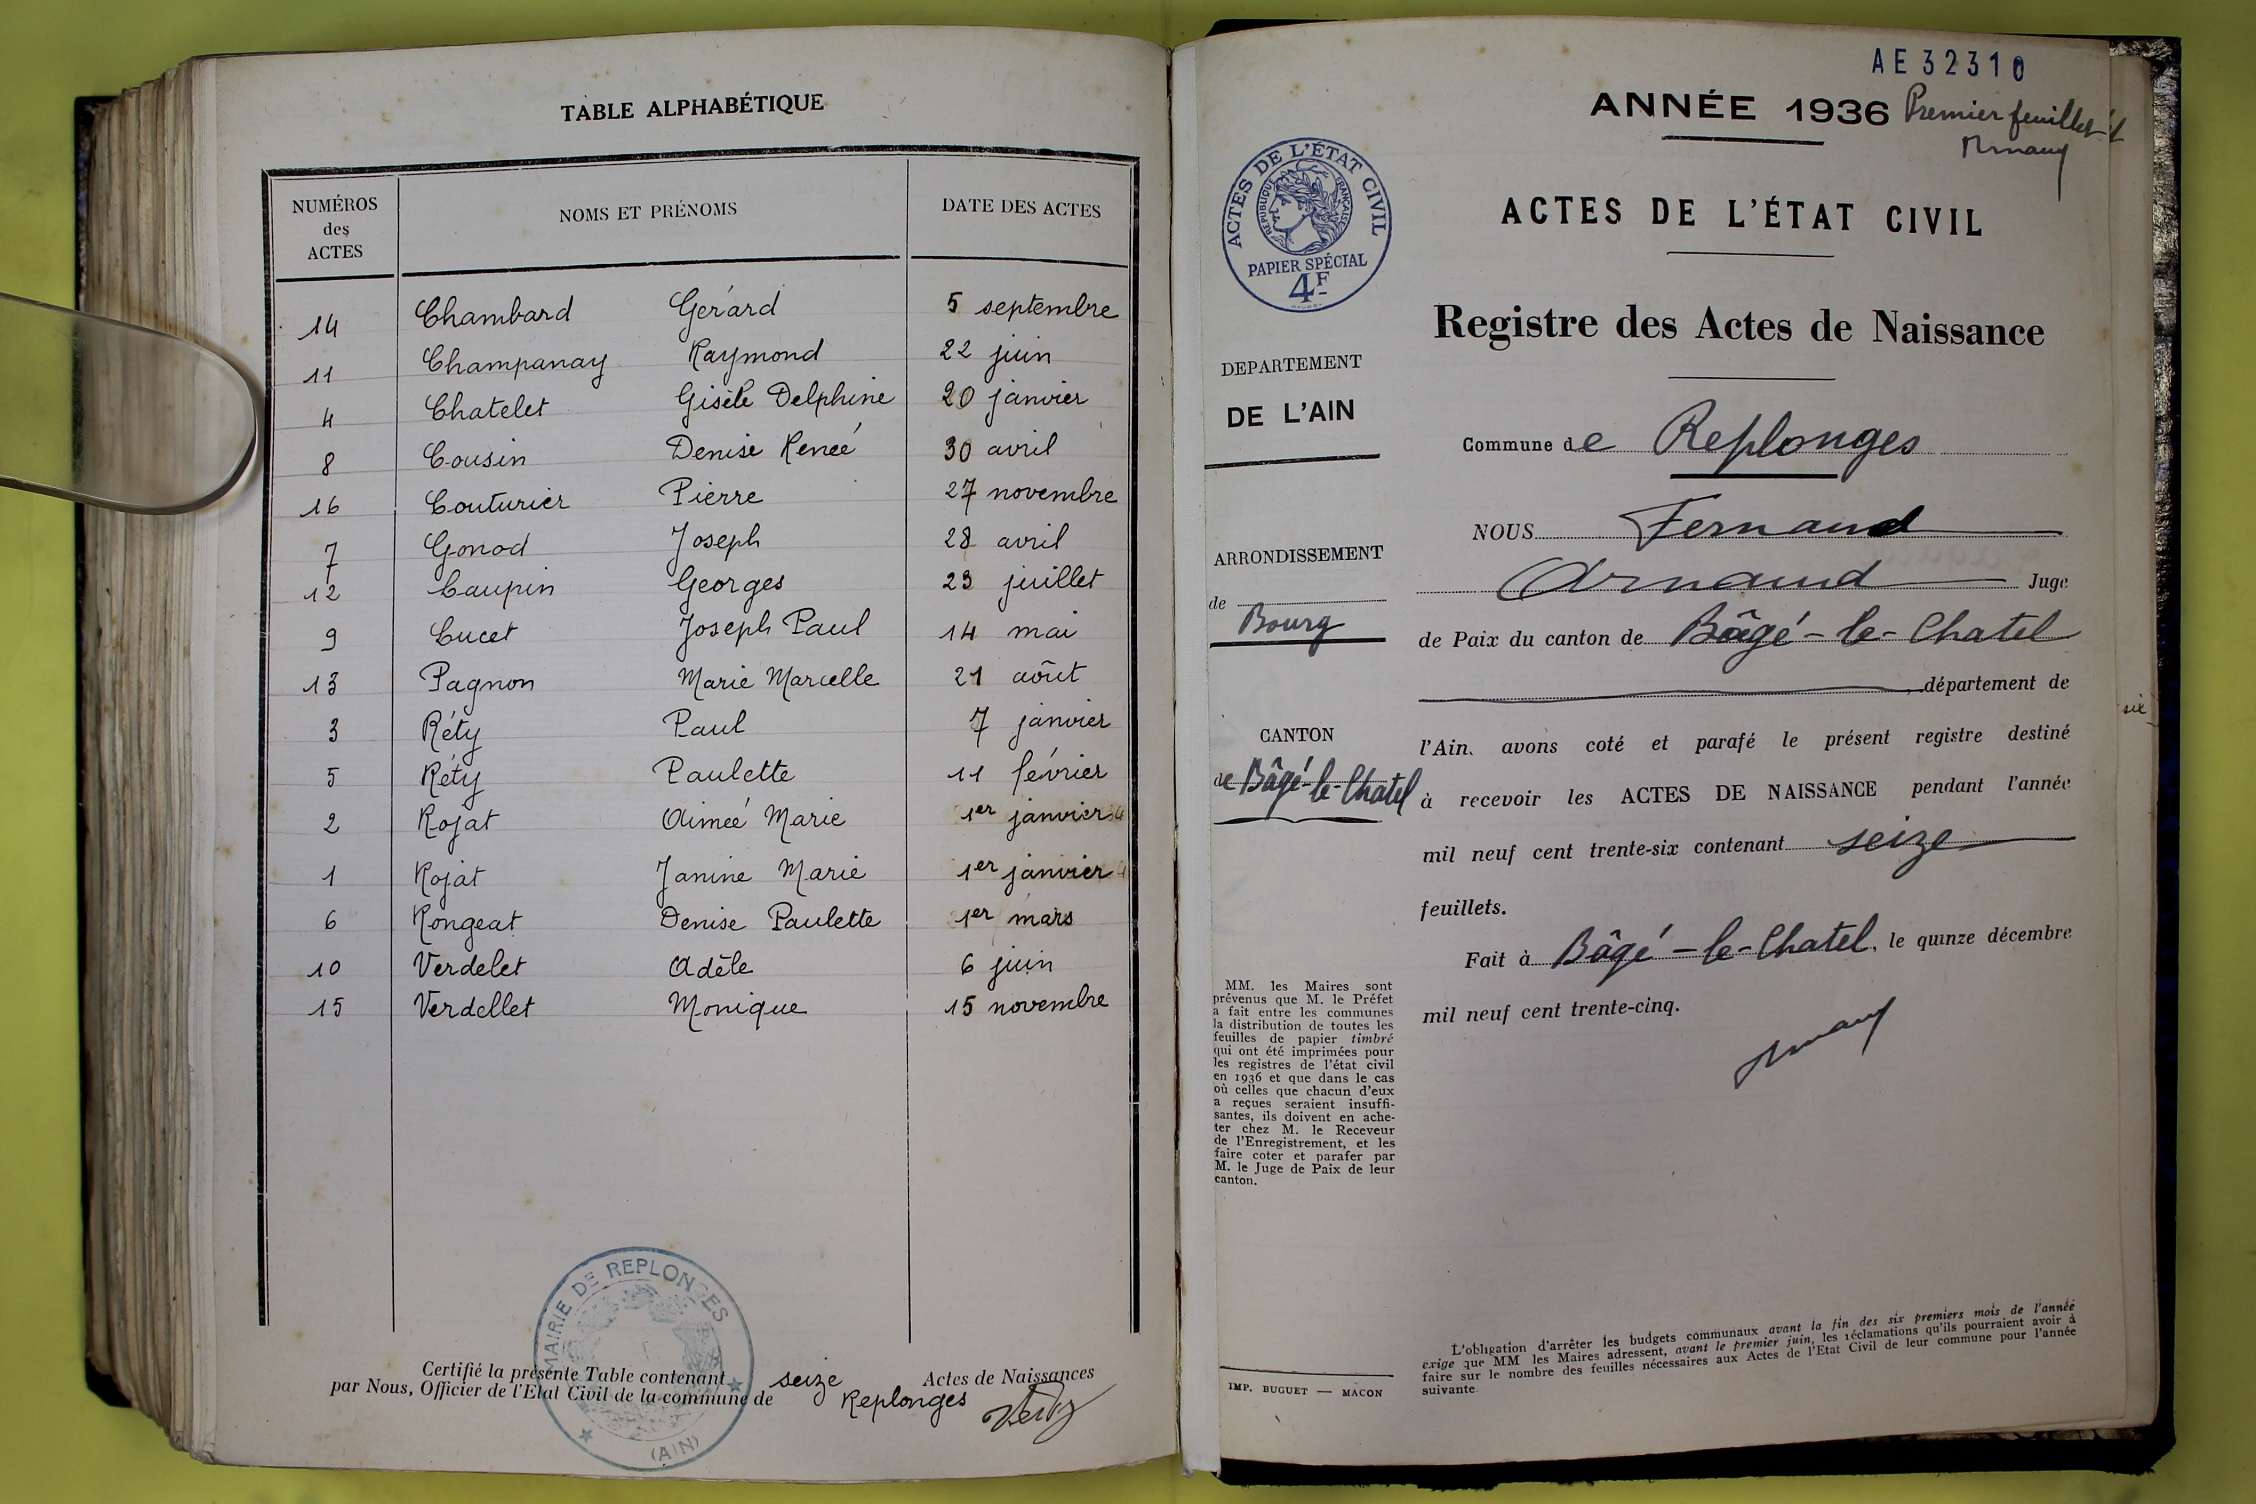 TABLE ALPHABÉTIQUE
NUMÉROS des ACTES NOMS ET PRÉNOMS DATE DES ACTES
14 Chambard Gérard 5 septembre
11 Champanay Raymond 22 juin
4 Chatelet Gisèle Delphine 20 janvier
8 Cousin Denise Renée 30 avril
16 Couturier Pierre 27 novembre
7 Gonod Joseph 28 avril
12 Laupin Georges 23 juillet
9 Lucet Joseph Paul 14 mai
13 Pagnon Marie Marcelle 21 août
3 Réty Paul 7 janvier
5 Réty Paulette 11 février
2 Rojat Aimée Marie 1er janvier
1 Rojat Janine Marie 1er janvier
6 Rongeat Denise Paulette 1er mars
10 Verdelet Adèle 6 juin
15 Verdellet Monique 15 novembre
MAIRIE DE REPLONGES
(AIN)
Certifié la présente Table contenant seize Actes de Naissances
par Nous, Officier de l'Etat Civil de la commune de Replonges
AE 32310
ANNÉE 1936 Premier feuillet
Arnaud
ACTES DE L'ÉTAT CIVIL
RÉPUBLIQUE FRANÇAISE
PAPIER SPÉCIAL
4F
ACTES DE L'ÉTAT CIVIL
Registre des Actes de Naissance
DEPARTEMENT
DE L'AIN
ARRONDISSEMENT
de Bourg
CANTON
de Bâgé-le-Chatel
MM. les Maires sont
prévenus que M. le Préfet
a fait entre les communes
la distribution de toutes les
feuilles de papier timbré
qui ont été imprimées pour
les registres de l'état civil
en 1936 et que dans le cas
où celles que chacun d'eux
a reçues seraient insuffi-
santes, ils doivent en ache-
ter chez M. le Receveur
de l'Enregistrement, et les
faire coter et parafer par
M. le Juge de Paix de leur
canton.
IMP. BUGUET — MACON
Commune de Replonges
NOUS Fernand
Arnaud Juge
de Paix du canton de Bâgé-le-Chatel
, département de
l'Ain, avons coté et parafé le présent registre destiné
à recevoir les ACTES DE NAISSANCE pendant l'année
mil neuf cent trente-six contenant seize
feuillets.
Fait à Bâgé-le-Chatel, le quinze décembre
mil neuf cent trente-cinq.
Arnaud
L'obligation d'arrêter les budgets communaux avant la fin des six premiers mois de l'année
exige que MM les Maires adressent, avant le premier juin, les réclamations qu'ils pourraient avoir à
faire sur le nombre des feuilles nécessaires aux Actes de l'Etat Civil de leur commune pour l'année
suivante
six